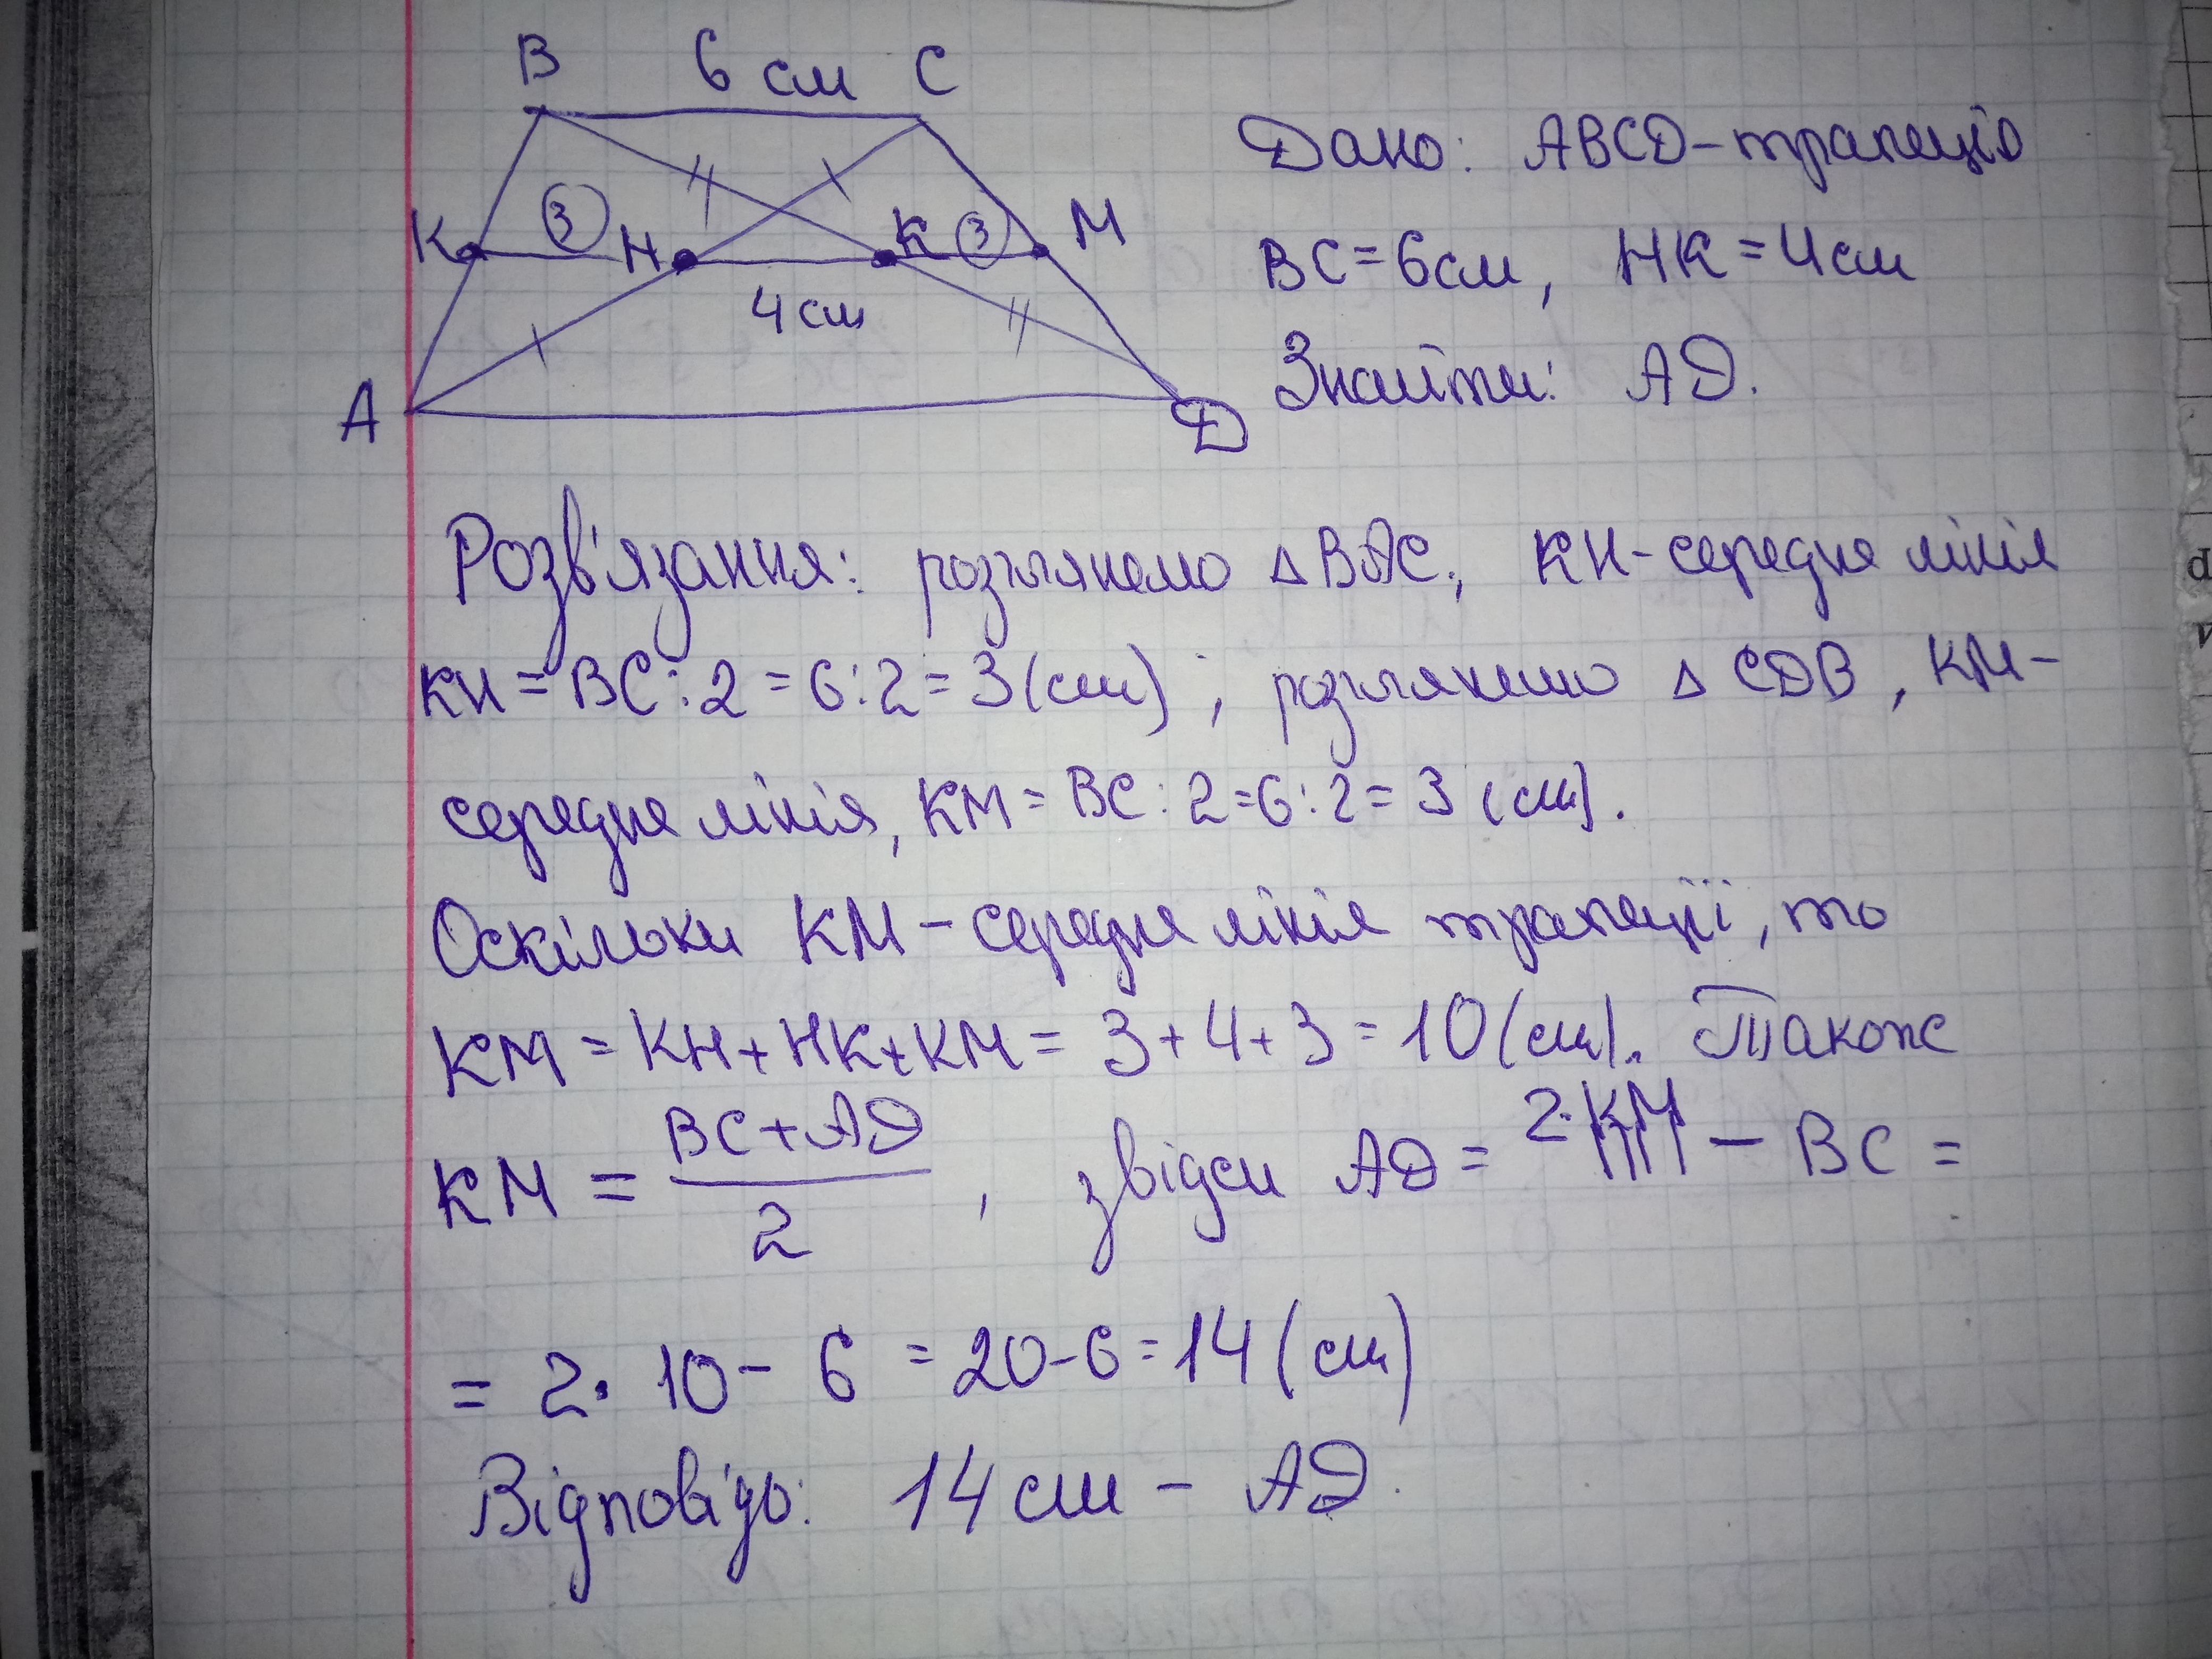 B 6 см C
Дано: ABCD-трапеція
K 3 H K 3 M
BC=6см, HK=4см
4 см
Знайти: AD.
A D
Розв'язання: розглянемо △BAC, KH-середня лінія
KH=BC:2=6:2=3(см); розглянемо △CDB, KM-
середня лінія, KM=BC:2=6:2=3(см).
Оскільки KM-середня лінія трапеції, то
KM=KH+HK+KM=3+4+3=10(см). Також
KM = BC+AD / 2, звідси AD = 2·KM - BC =
= 2·10-6 = 20-6=14(см)
Відповідь: 14см - AD.